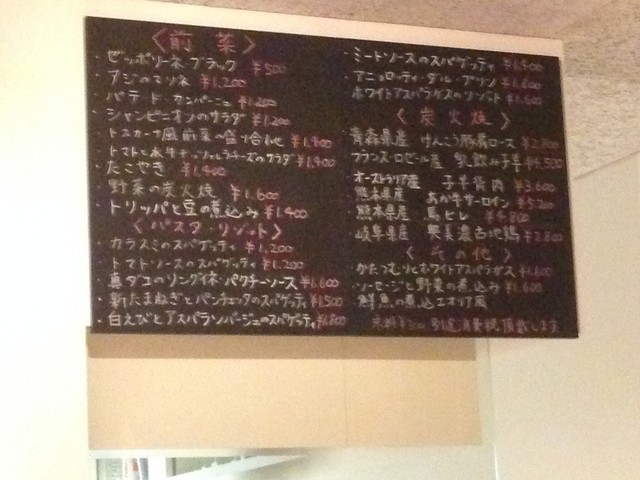 〈前菜〉
・ゼッポリーネ ブラック ¥500
・アジのマリネ ¥1,200
・パテ・ド・カンパーニュ ¥1,200
・シャンピニオンのサラダ ¥1,200
・トスカーナ風前菜の盛り合わせ ¥1,900
・トマトと水牛モッツァレラチーズのサラダ ¥1,900
・たこやき ¥1,400
・野菜の炭火焼 ¥1,600
・トリッパと豆の煮込み ¥1,400
〈パスタ・リゾット〉
・カラスミのスパゲッティ ¥1,200
・トマトソースのスパゲッティ ¥1,200
・真ダコのリングイネ・パクチーソース ¥1,600
・新たまねぎとパンチェッタのスパゲッティ ¥1,500
・白えびとアスパラソバージュのスパゲッティ ¥1,800
・ミートソースのスパゲッティ ¥1,400
・アニョロッティ・ダル・プリン ¥1,800
・ホワイトアスパラガスのリゾット ¥1,600
〈炭火焼〉
青森県産 けんこう豚肩ロース ¥2,800
フランス・ロゼール産 乳飲み子羊 ¥4,500
オーストラリア産 子羊背肉 ¥3,600
熊本県産 あか牛サーロイン ¥5,200
・熊本県産 馬ヒレ ¥4,800
岐阜県産 奥美濃古地鶏 ¥2,800
〈その他〉
・かたつむりとホワイトアスパラガス ¥1,600
・ソーセージと野菜の煮込み ¥1,600
・鮮魚の煮込 風
別途消費税頂戴します